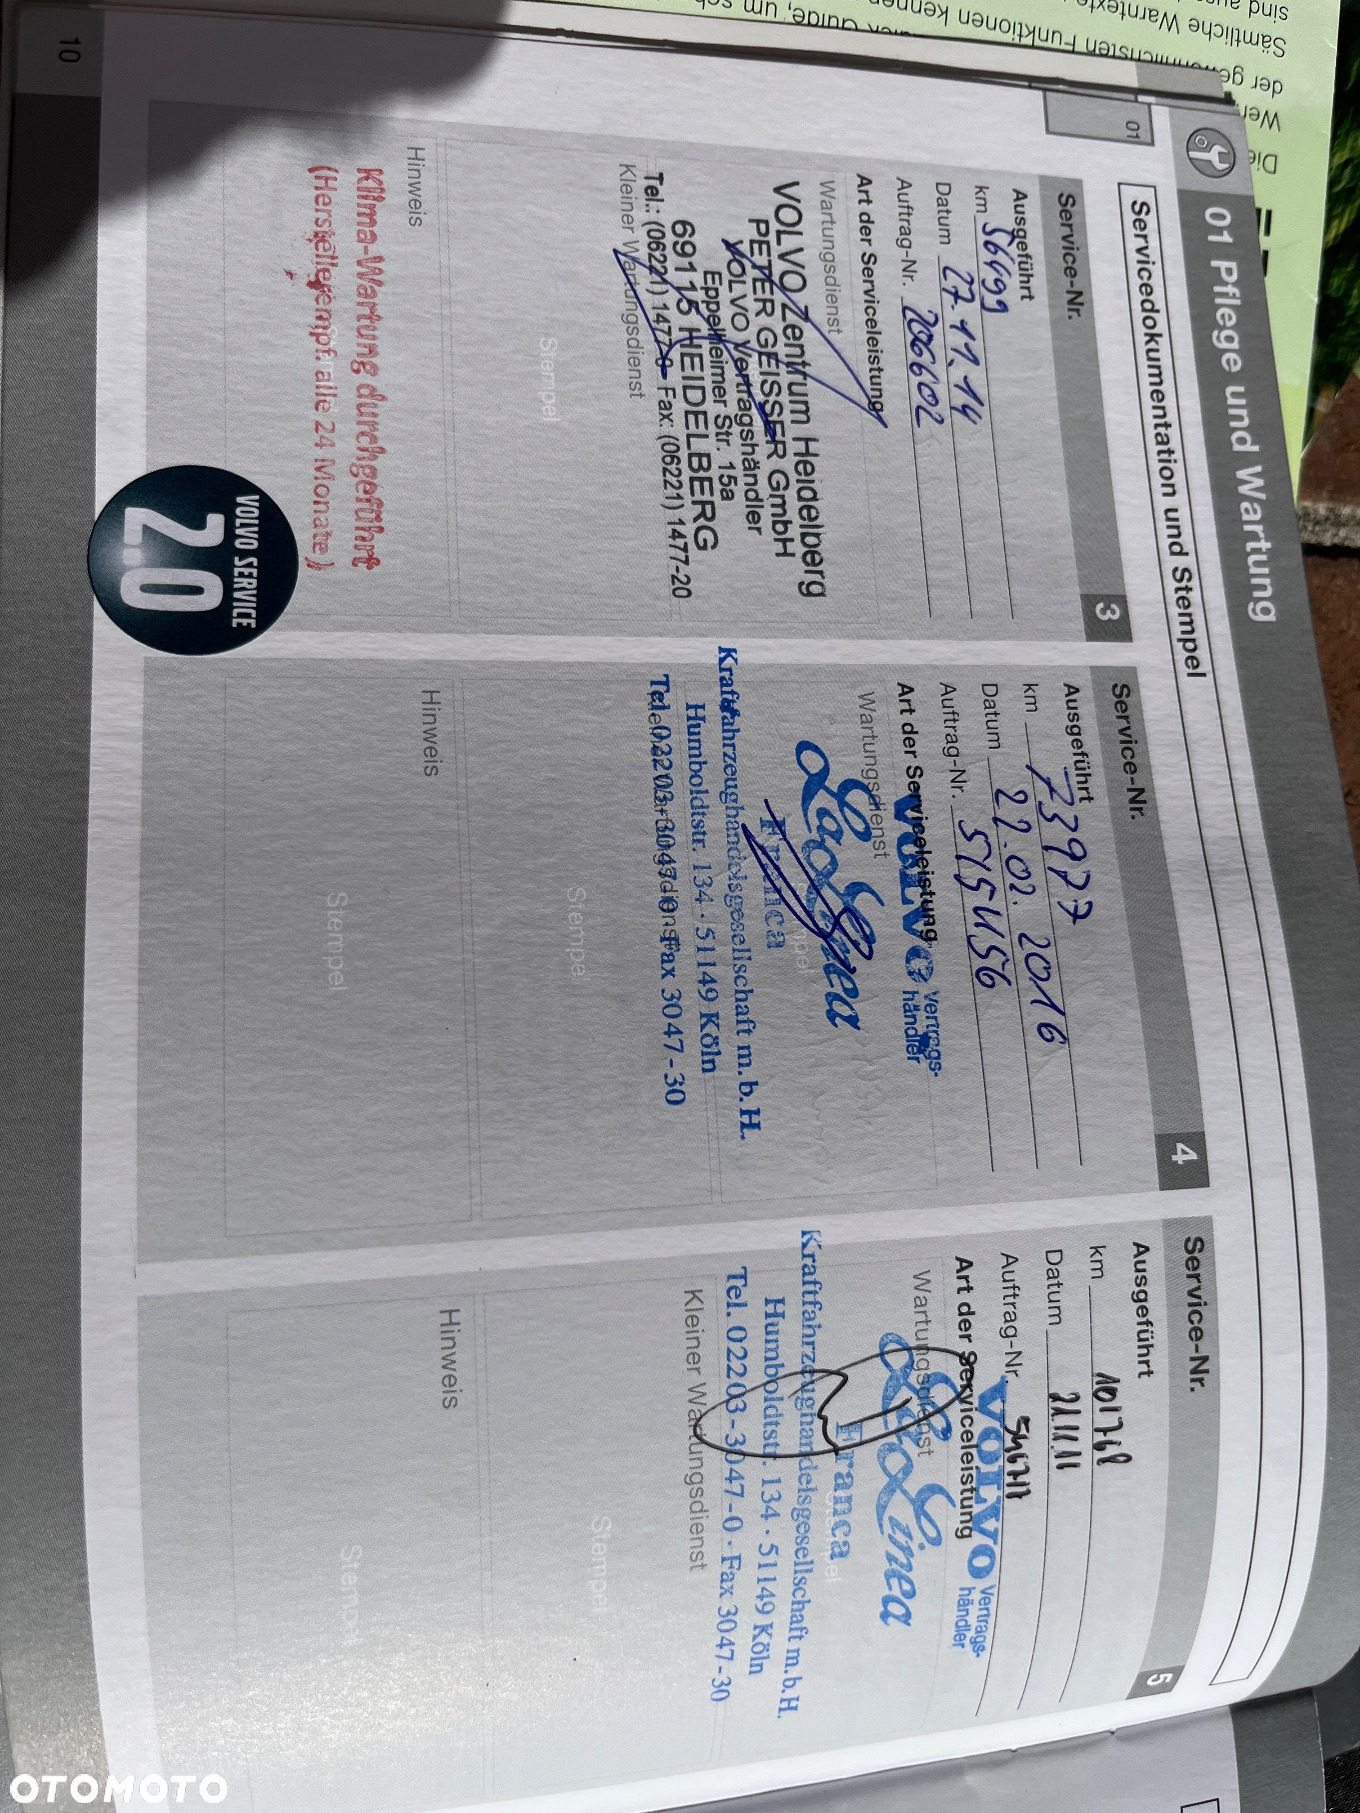 01 Pflege und Wartung
Servicedokumentation und Stempel
01
Service-Nr. 3
Ausgeführt
km 56499
Datum 27.11.14
Auftrag-Nr. 206602
Art der Serviceleistung
Wartungsdienst
VOLVO Zentrum Heidelberg
PETER GEISSER GmbH
VOLVO Vertragshändler
Eppelheimer Str. 15a
69115 HEIDELBERG
Tel.: (06221) 1477-0 Fax: (06221) 1477-20
Kleiner Wartungsdienst
Stempel
Hinweis
Klima-Wartung durchgeführt
(Herstellerempf. alle 24 Monate)
VOLVO SERVICE
2.0
Service-Nr. 4
Ausgeführt
km 73977
Datum 22.02.2016
Auftrag-Nr. 515456
Art der Serviceleistung
VOLVO Vertrags-
händler
Wartungsdienst
La Linea
Franca
Kraftfahrzeughandelsgesellschaft m.b.H.
Humboldtstr. 134 · 51149 Köln
Tel. 02203-3047-0 Fax 3047-30
Stempel
Hinweis
Stempel
Service-Nr. 5
Ausgeführt
km 101768
Datum 21.11.16
Auftrag-Nr.
Art der Serviceleistung
VOLVO Vertrags-
händler
Wartungsdienst
La Linea
Franca
Kraftfahrzeughandelsgesellschaft m.b.H.
Humboldtstr. 134 · 51149 Köln
Tel. 02203-3047-0 · Fax 3047-30
Kleiner Wartungsdienst
Stempel
Hinweis
Stempel
10
Sämtliche Warntexte
Funktionen kennen
der
sind
OTOMOTO